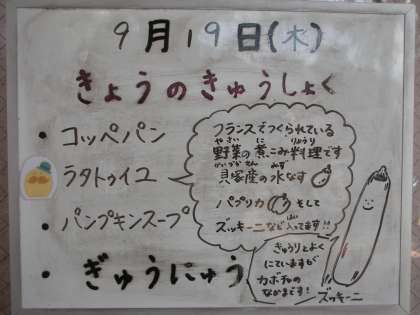 9月19日(木)
きょうのきゅうしょく
・コッペパン
・ラタトゥイユ
・パンプキンスープ
・ぎゅうにゅう
フランスでつくられている
やさい に りょうり
野菜の煮こみ料理です
かいづかさん みず
貝塚産の水なす
パプリカ そして
ズッキーニなど入ってます!!
きゅうりとよく
にていますが
カボチャの
なかまです!
ズッキーニ